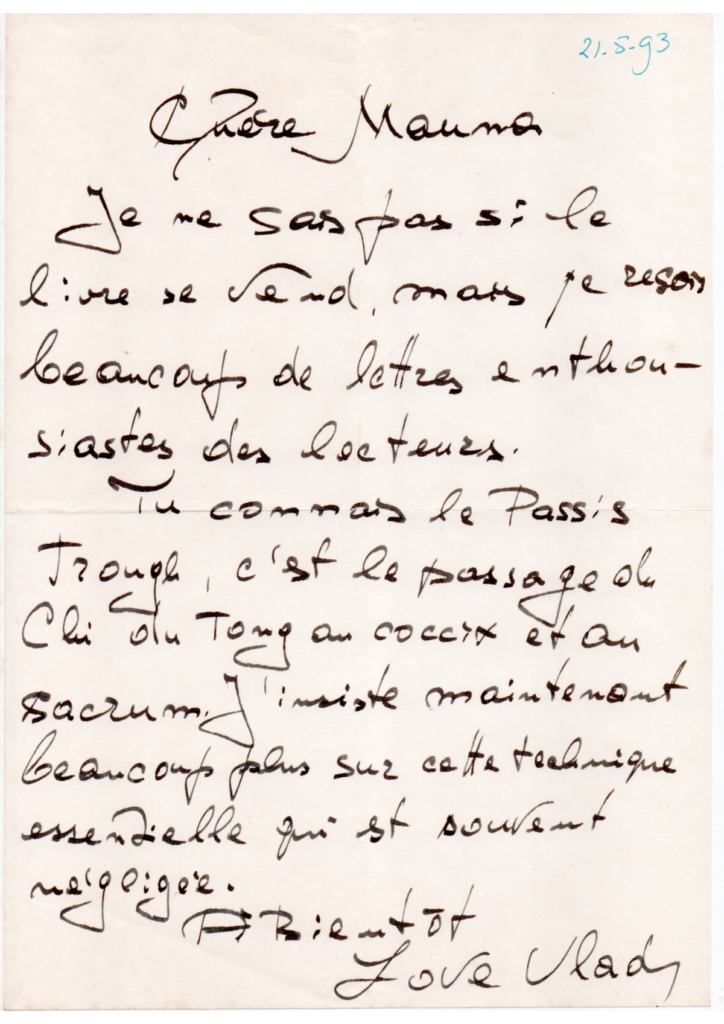 21.5.93
Chère Mauna
Je ne sais pas si le
livre se vend, mais je reçois
beaucoup de lettres enthou-
siastes des lecteurs.
Tu connais le Passis
Trough, c'est le passage du
Chi du Tong au coccix et au
sacrum. J'insiste maintenant
beaucoup plus sur cette technique
essentielle qui est souvent
négligée.
A Bientôt
Love Vlady